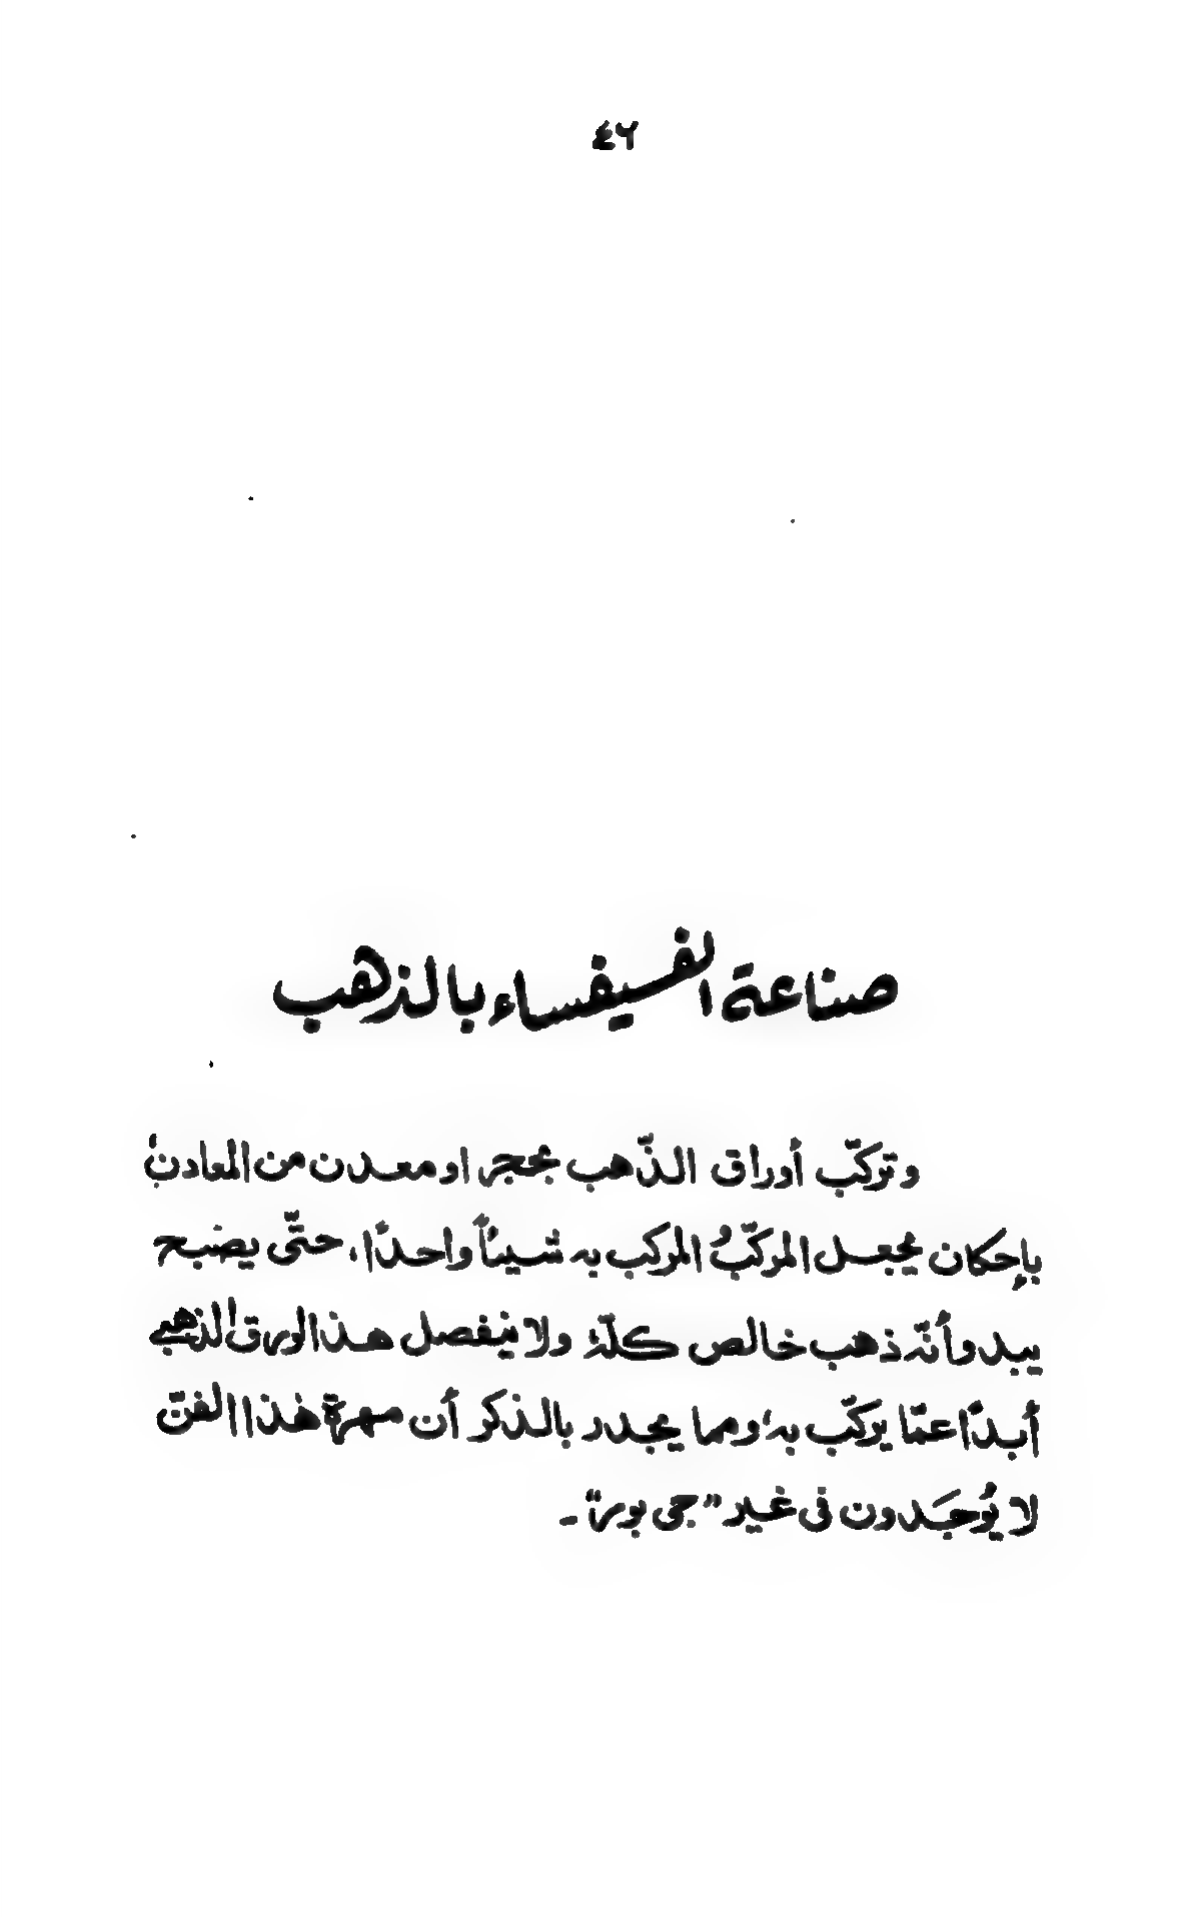 ٤٦
صناعة الفسيفساء بالذهب
وتركّب أوراق الذّهب بحجر او معدن من المعادن
بإحكان يجعل المركّبُ المركب به شيئاً واحدًا، حتّى يصبح
يبدو أنّه ذهب خالص كلّهٗ ولا ينفصل هذا الورق الذهبي
أبدًا عمّا يركّب به، ومما يجدر بالذكر أن مهرة هٰذا الفنّ
لا يُوجَدون فى غير "جى بور" -